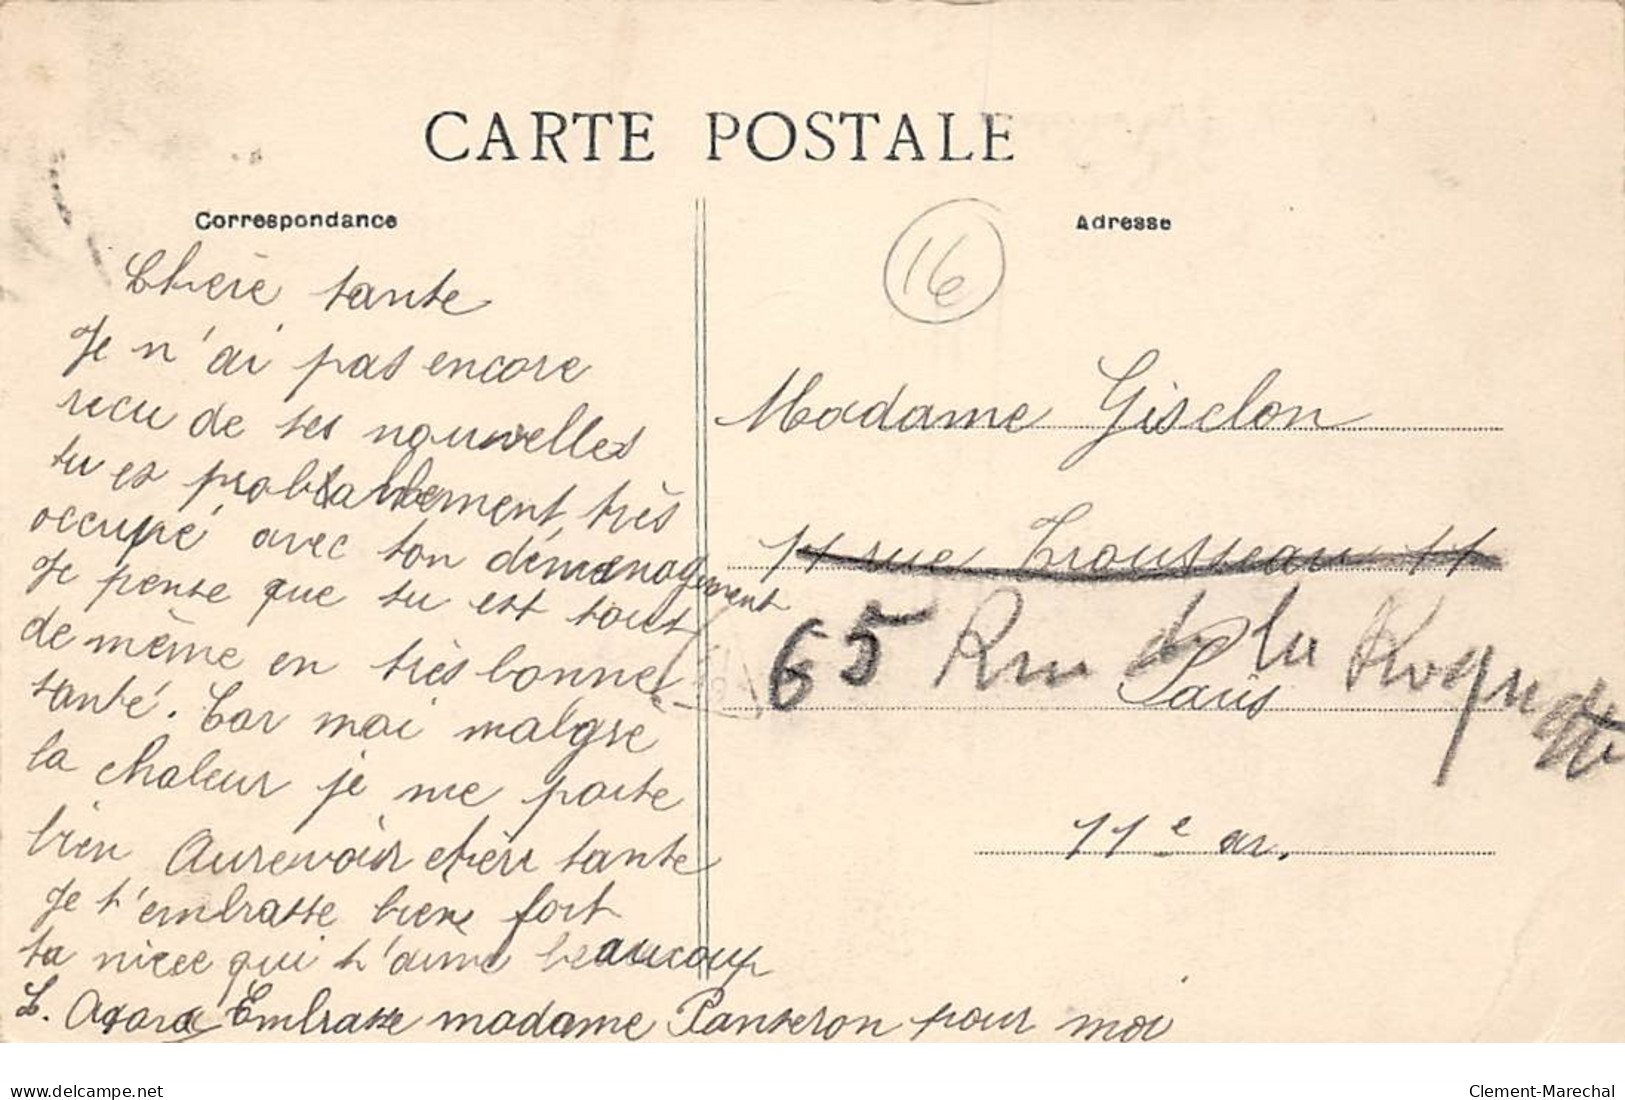 CARTE POSTALE
Correspondance
Chère tante
Je n'ai pas encore
recu de tes nouvelles
tu es probablement très
occupé avec ton déménagement
Je pense que tu est tout
de même en très bonne
santé. Car moi malgre
la chaleur je me porte
bien Aurevoir chère tante
Je t'embrasse bien fort
ta niece qui t'aime beaucoup
Embrasse madame Panseron pour moi
Adresse
16
Madame Gisclon
11 rue Trousseau 11
65 Rue de la Roquette
Paris
11e ar.
delcampe.net
Clement-Marechal